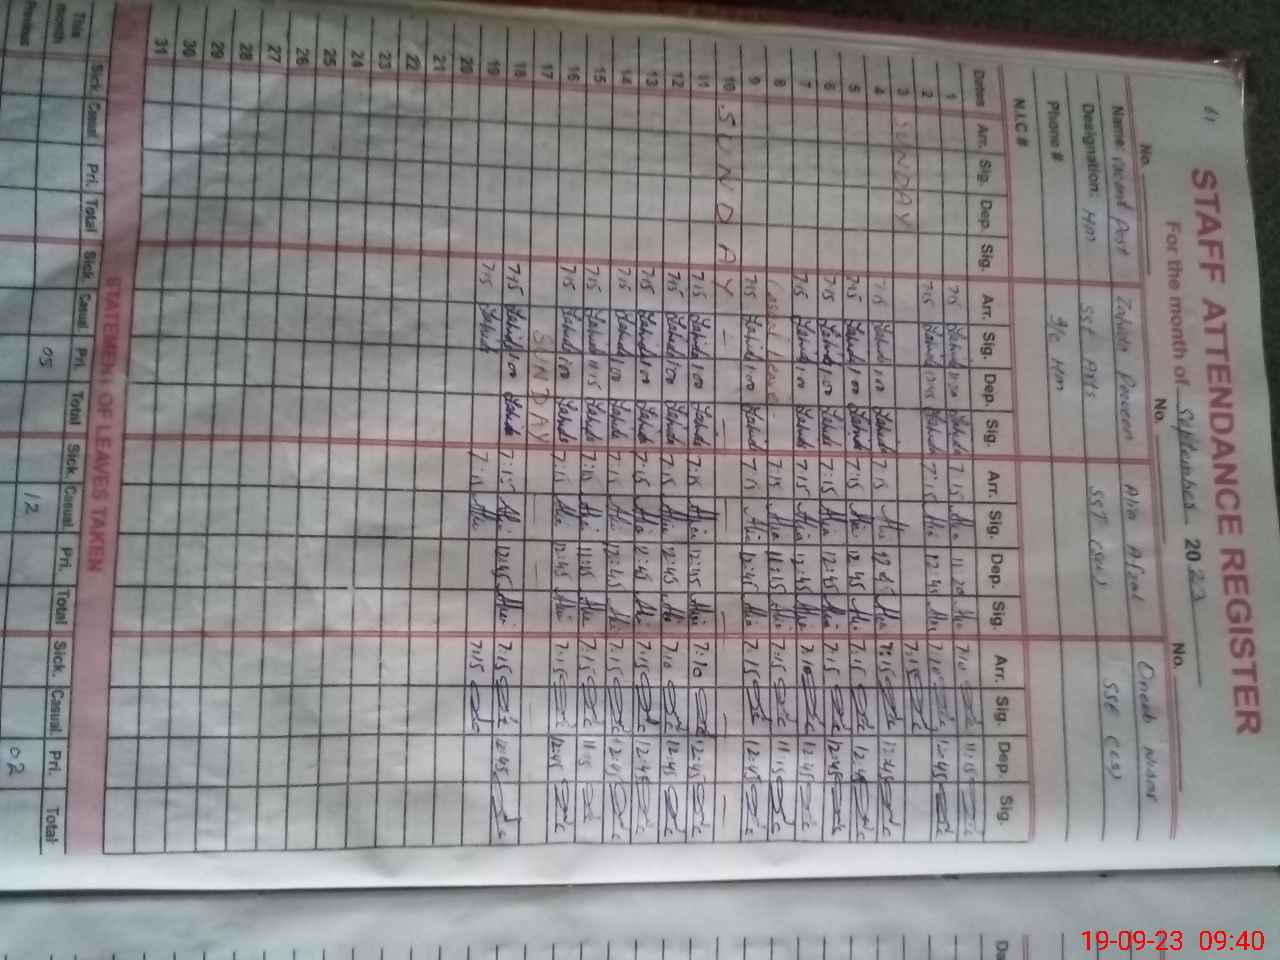 61
STAFF ATTENDANCE REGISTER
For the month of September 2023
No. No. No.
Name: Vacant Post Zahida Parveen Alia Afzal Nisar
Designation: HM SST Arts SST (Sci) SSE (CS)
Phone # I/C HM
N.I.C #
Dates Arr. Sig. Dep. Sig. Arr. Sig. Dep. Sig. Arr. Sig. Dep. Sig. Arr. Sig. Dep. Sig.
1 7:15 Zahida 7:15 Alia 11:20 Alia 7:10 11:15
2 7:15 Zahida Zahida 7:15 Alia 12:45 Alia 7:10 12:45
3 SUNDAY 7:15
4 7:15 Zahida 1:00 Zahida 7:15 Alia 12:45 Alia 7:15 12:45
5 7:15 Zahida 1:00 Zahida 7:15 Alia 12:45 Alia 7:15 12:45
6 7:15 Zahida 1:00 Zahida 7:15 Alia 12:45 Alia 7:15 12:45
7 7:15 Zahida 1:00 Zahida 7:15 Alia 12:45 Alia 7:10 12:45
8 Casual Leave 7:15 Alia 11:15 Alia 7:15 11:15
9 7:15 Zahida 1:00 Zahida 7:15 Alia 12:45 Alia 7:15 12:45
10 SUNDAY
11 7:15 Zahida 1:00 Zahida 7:15 Alia 12:45 Alia 7:10 12:45
12 7:15 Zahida 1:00 Zahida 7:15 Alia 12:45 Alia 7:10 12:45
13 7:15 Zahida 1:00 Zahida 7:15 Alia 12:45 Alia 7:15 12:45
14 7:15 Zahida 1:00 Zahida 7:15 Alia 12:45 Alia 7:15 12:45
15 7:15 Zahida 11:15 Zahida 7:15 Alia 11:15 Alia 7:15 11:15
16 7:15 Zahida 1:00 Zahida 7:15 Alia 12:45 Alia 7:15 12:45
17 SUNDAY
18 7:15 Zahida 1:00 Zahida 7:15 Alia 12:45 Alia 7:15 12:45
19 7:15 Zahida 7:15 Alia 7:15
20
21
22
23
24
25
26
27
28
29
30
31
STATEMENT OF LEAVES TAKEN
Sick Casual Pri. Total Sick. Casual Pri. Total Sick. Casual Pri. Total Sick. Casual Pri. Total
This month 05 12 02
Previous
19-09-23 09:40